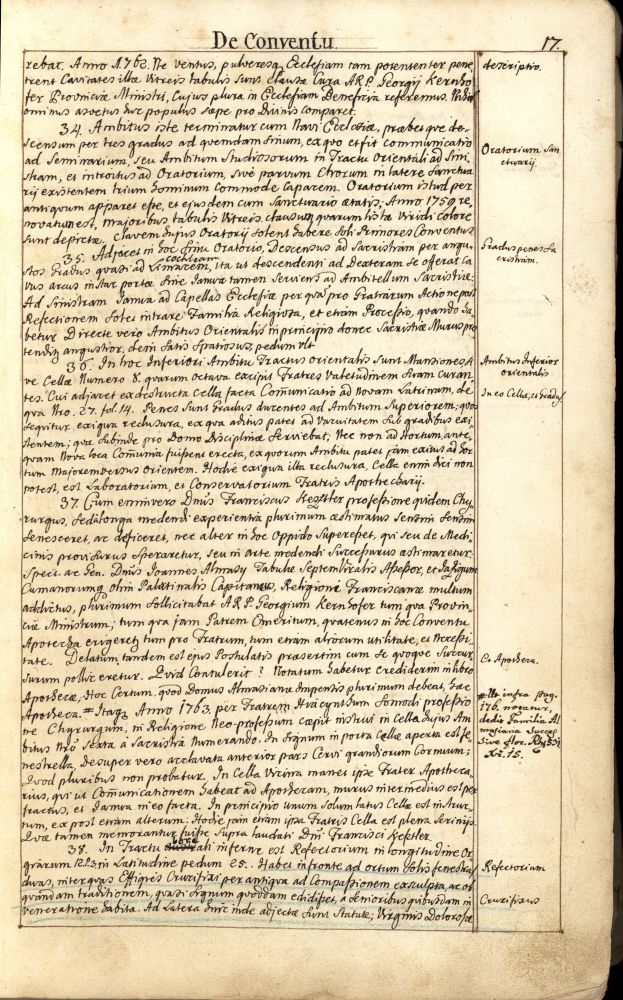 De Conventu.
17.
rebat. Anno 1763. Ne ventus, pulveresq. Ecclesiam tam potententer pene
trent Cavitates illæ Vitreis tabulis sunt clausæ Cura A.R.P. Georgij Kernho
fer Provinciæ Ministri, Cujus plura in Ecclesiam Beneficia referemus.
ominus asvetus huc populus sæpe pro Divinis comparet.
34. Ambitus iste terminatur cum Navi Ecclesiæ, præbetque de-
scensum per tres gradus ad quemdam sinum, ex quo et fit communicatio
ad Seminarium, seu Ambitum Studiosorum in Tractu Orientali ad Sini
stram, et introitus ad Oratorium, sivè parvum Chorum in latere Sanctua
rij existentem trium hominum commode capacem. Oratorium istud per
antiquum apparet esse, et ejusdem cum Sanctuario ætatis. Anno 1759 re,
novatum est, majoribus tabulis Vitreis clausum, quarum Viridi colore
sunt depictæ. Clavem hujus Oratorij solent habere soli Primores Conventus
35. Adjacet in hoc sinu Oratorio, Descensus ad Sacristiam per angu-
stos gradus quasi ad Limacem, ita ut descendenti ad Dexteram se offerat ca
cochleam
vus arcus instar portæ sine Janua tamen serviens ad Ambitellum Sacristiæ:
Ad Sinistram Janua ad Capellas Ecclesiæ per quas pro Gratiarum Actione post
Refectionem solet intrare Familia Religiosa, et etiam Processio, quando ha-
betur. Directe vero Ambitus Orientalis in principio donec Sacristiæ Murus pro
tendit, angustior, dein satis spatiosus, pedum
36. In hoc Inferiori Ambitu Tractus orientalis sunt Mansiones, si
ve Cellæ Numero 8. quarum octava excipit Fratres Valetudinem suam curan
tes. Cui adjacet ex destructa Cella facta Comunicatio ad Novam Latrinam, de
qua Nro. 27. fol. 14. Penes sunt gradus ducentes ad Ambitum Superiorem; quos
sequitur exigua reclusura, ex qua aditus patet ad Vacuitatem sub gradibus exi
stentem; quæ subinde pro Domo Disciplinæ serviebat; Nec non ad Hortum, ante,
quam Nova loca Comunia fuissent erecta, ex quorum Ambitu patet jam exitus ad hor
tum Majorem versus Orientem. Hodiè exigua illa reclusura, Cella enim dici non
potest, est Laboratorium, et Conservatorium Fratris Apothecarij.
37. Cum enimvero Dnus Franciscus Keszler professione quidem Chy-
rurgus, sed longa medendi experientia plurimum æstimatus sensim sensim
senesceret, ac deficeret, nec alter in hoc Oppido superesset, qui seu de Medi
cinis provisurus speraretur, seu in arte medendi successurus æstimaretur:
Spect. ac Gen. Dnus Joannes Almasy Tabulæ Septemviralis Assessor, et Jazigum
Cumanorumq. olim Palatinalis Capitaneus, Religioni Franciscanæ multum
addictus, plurimum sollicitabat A.R.P. Georgium Kernhofer tum qua Provin,
ciæ Ministrum; tum qua jam Patrem Emeritum, quatenus in hoc Conventu
Apotecha erigeret, tum pro Fratrum, tum etiam aliorum utilitate, et Necessi-
tate. Delatum tandem est ejus Postulatis præsertim cum se quoque succur
surum polliceretur. Quid Contulerit? Notatum habetur crediderim in libro
Apothecæ. Hoc Certum, quod Domus Almasiana Impensis plurimum debeat, hæc
Apotheca. # Itaq. Anno 1763. per Fratrem Hyacynthum Somodi professio
ne Chyrurgum, in Religione Neo-professum cæpit instrui in Cella hujus Am
bitus Nro sexta à Sacristia Numerando. In signum in porta Cellæ aperta est fe,
nestrella, desuper vero acclavata anterior pars Cervi grandiorum Cornuum;
Quod pluribus non probatur. In Cella Vicina manet ipse Frater Apotheca,
rius, qui ut Comunicationem habeat ad Apothecam, murus intermedius est per
fractus, et Janua in eo facta. In principio unum solum latus Cellæ est instruc-
tum, ex post etiam alterum: Hodie jam etiam ipsa Fratris Cella est plena scrinijs
Quæ tamen memorantur fuisse supra laudati Dni Francisci Keszler.
38. In Tractu inferne est Refectorium in longitudine Or
giarum in Latitudine pedum 25. Habet in fronte ad ortum Solis fenestras
duas, inter quas Effigies Crucifixi per antiqua ad Compassionem exsculpta, ac ob
quandam traditionem, quasi signum quoddam edidisset, a Senioribus quibusdam in
veneratione habita. Ad Latera hinc inde adjectæ sunt Statuæ; Virginis Dolorosæ
descriptio.
Oratorium San
ctuarij
Gradus penes Sa
cristiam.
Ambitus Inferior
orientalis
In eo Cellæ, et Gradus
Et Apotheca.
# Ut infra pag.
176. notatur,
dedit Familia Al
masiana
Sive flor.
Xr. 15.
Refectorium
Crucifixus